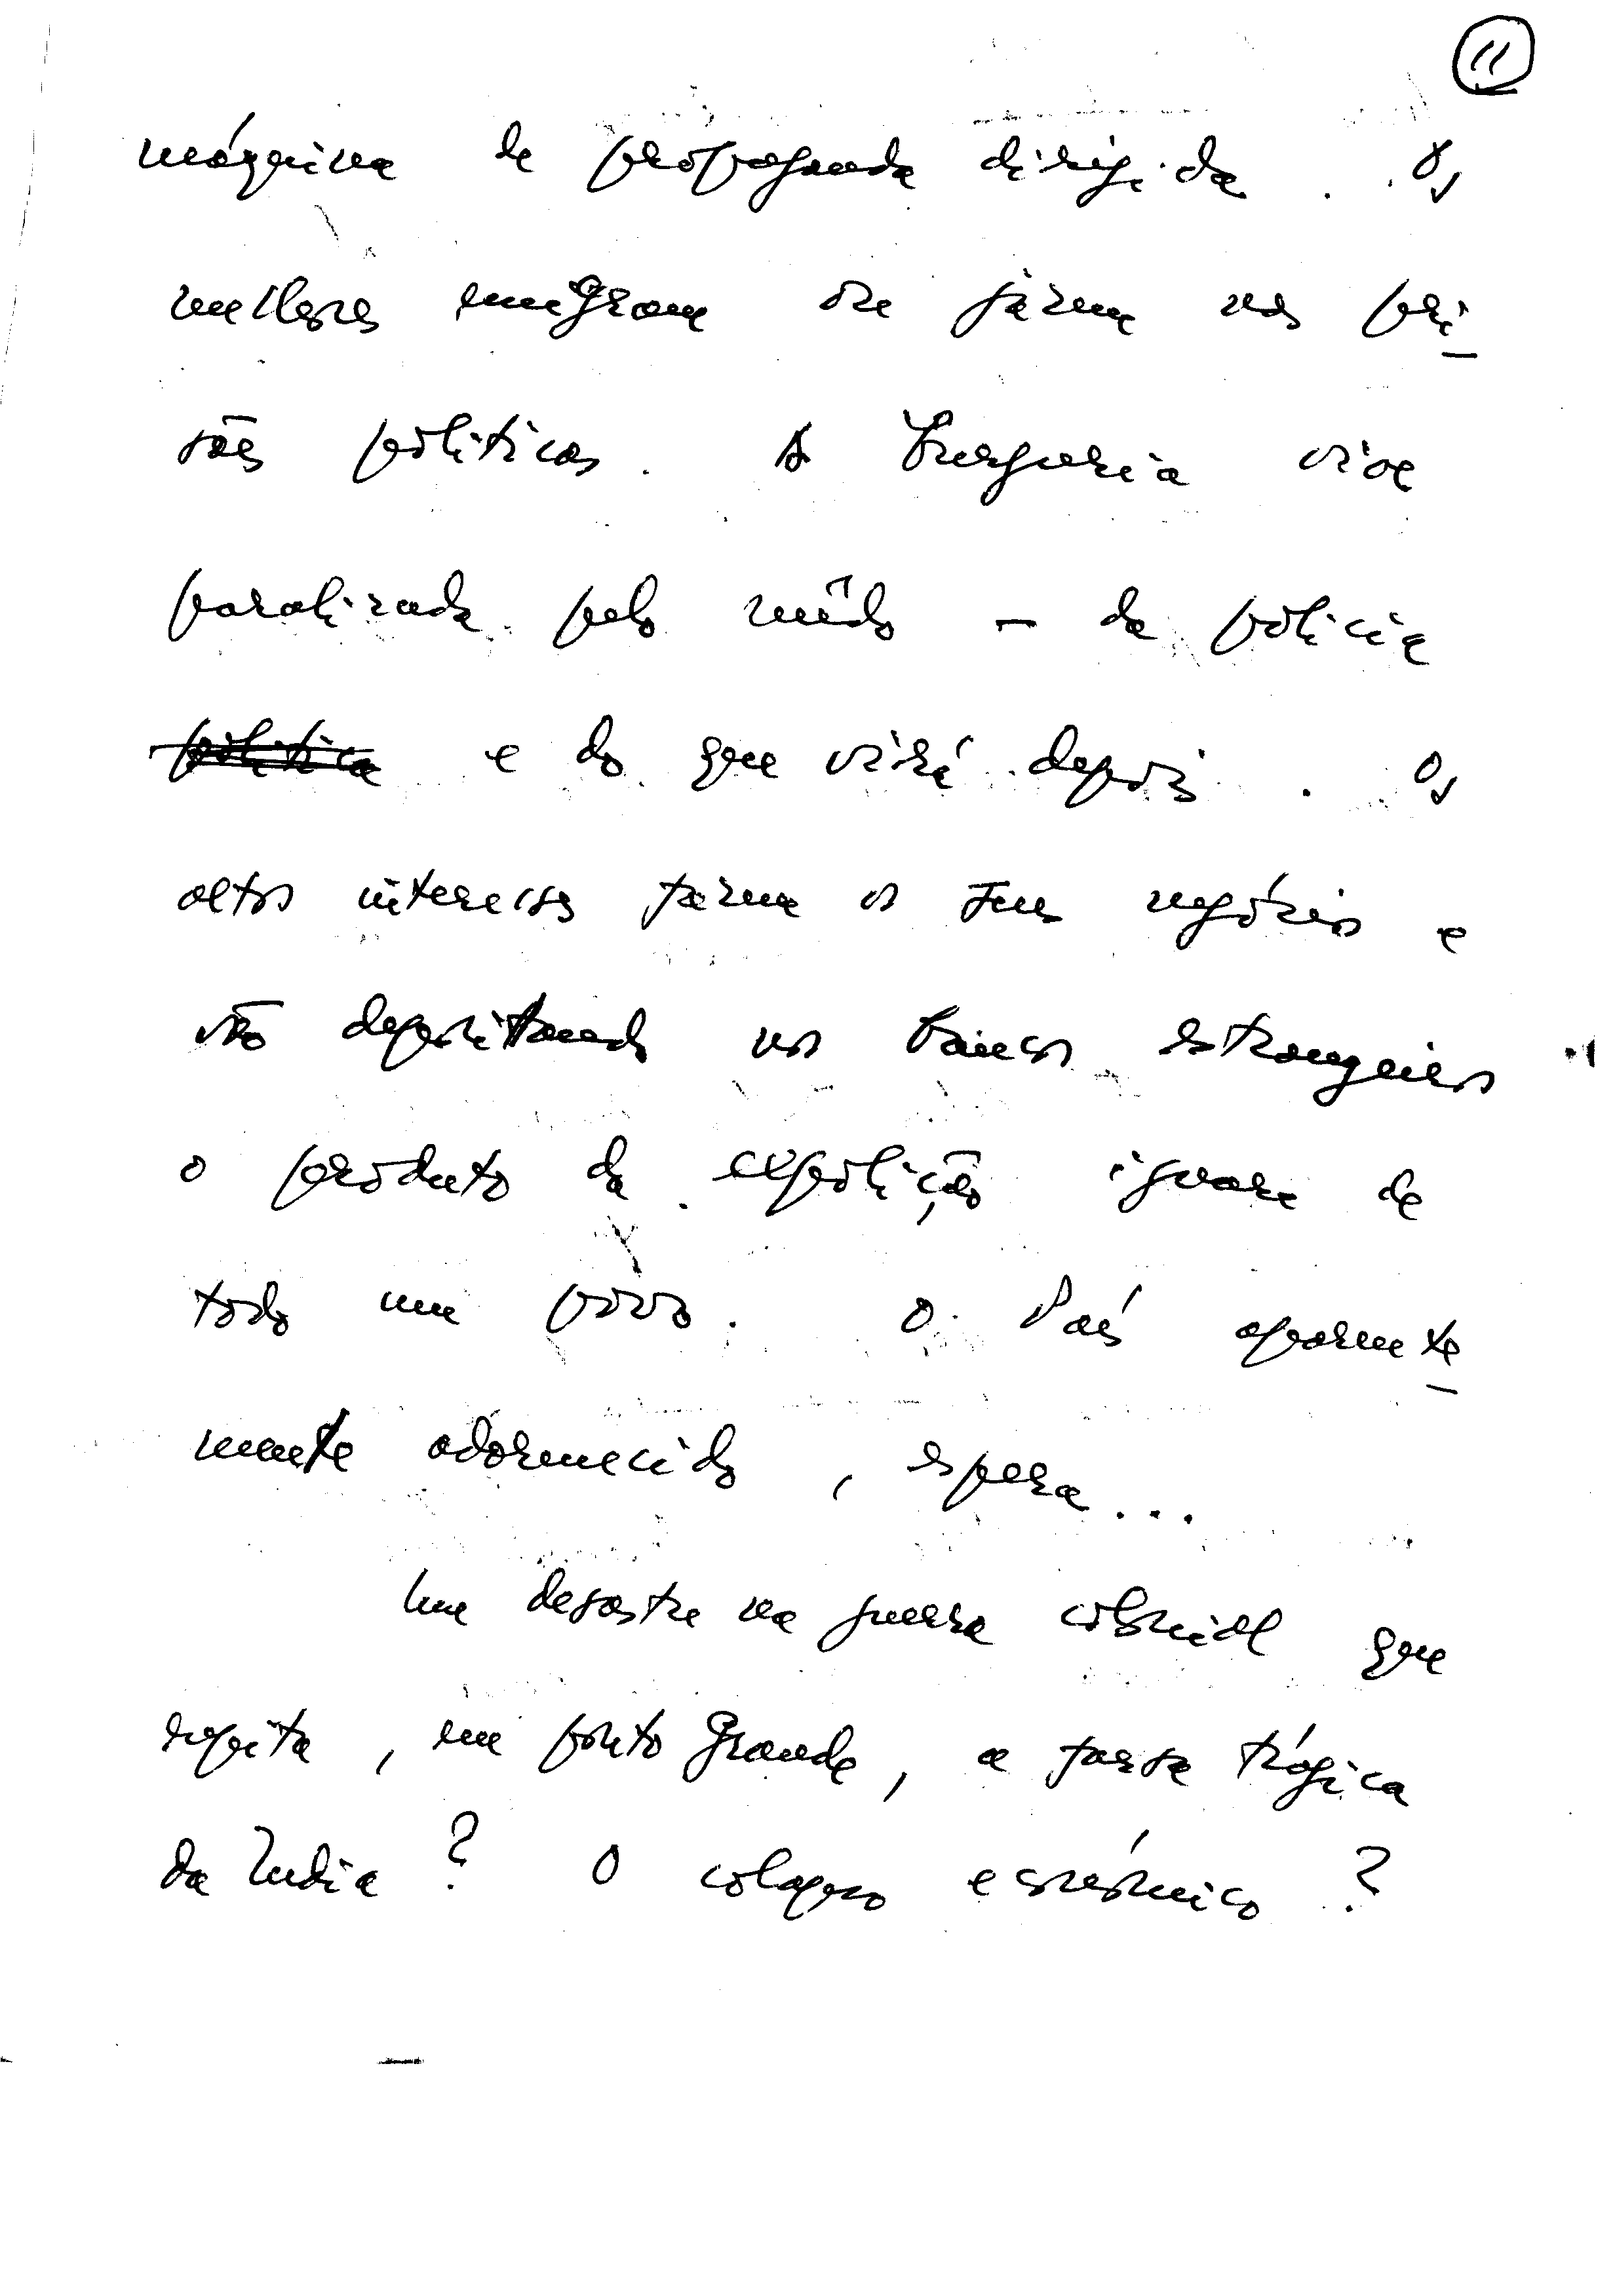 11
máquina de propaganda dirigida. Os
melhores emigram ou jazem nas pri-
sões políticas. A burguesia vive
paralizada pelo mêdo - da policia
politica e do que virá depois. Os
altos interesses fazem os seus negócios e
vão depositando nos bancos estrangeiros
o produto da expoliação ignara de
todo um povo. O País aparente-
mente adormecido, espera...
Um desastre na guerra colonial que
repita, em ponto grande, a farsa trágica
da India? O colapso económico?